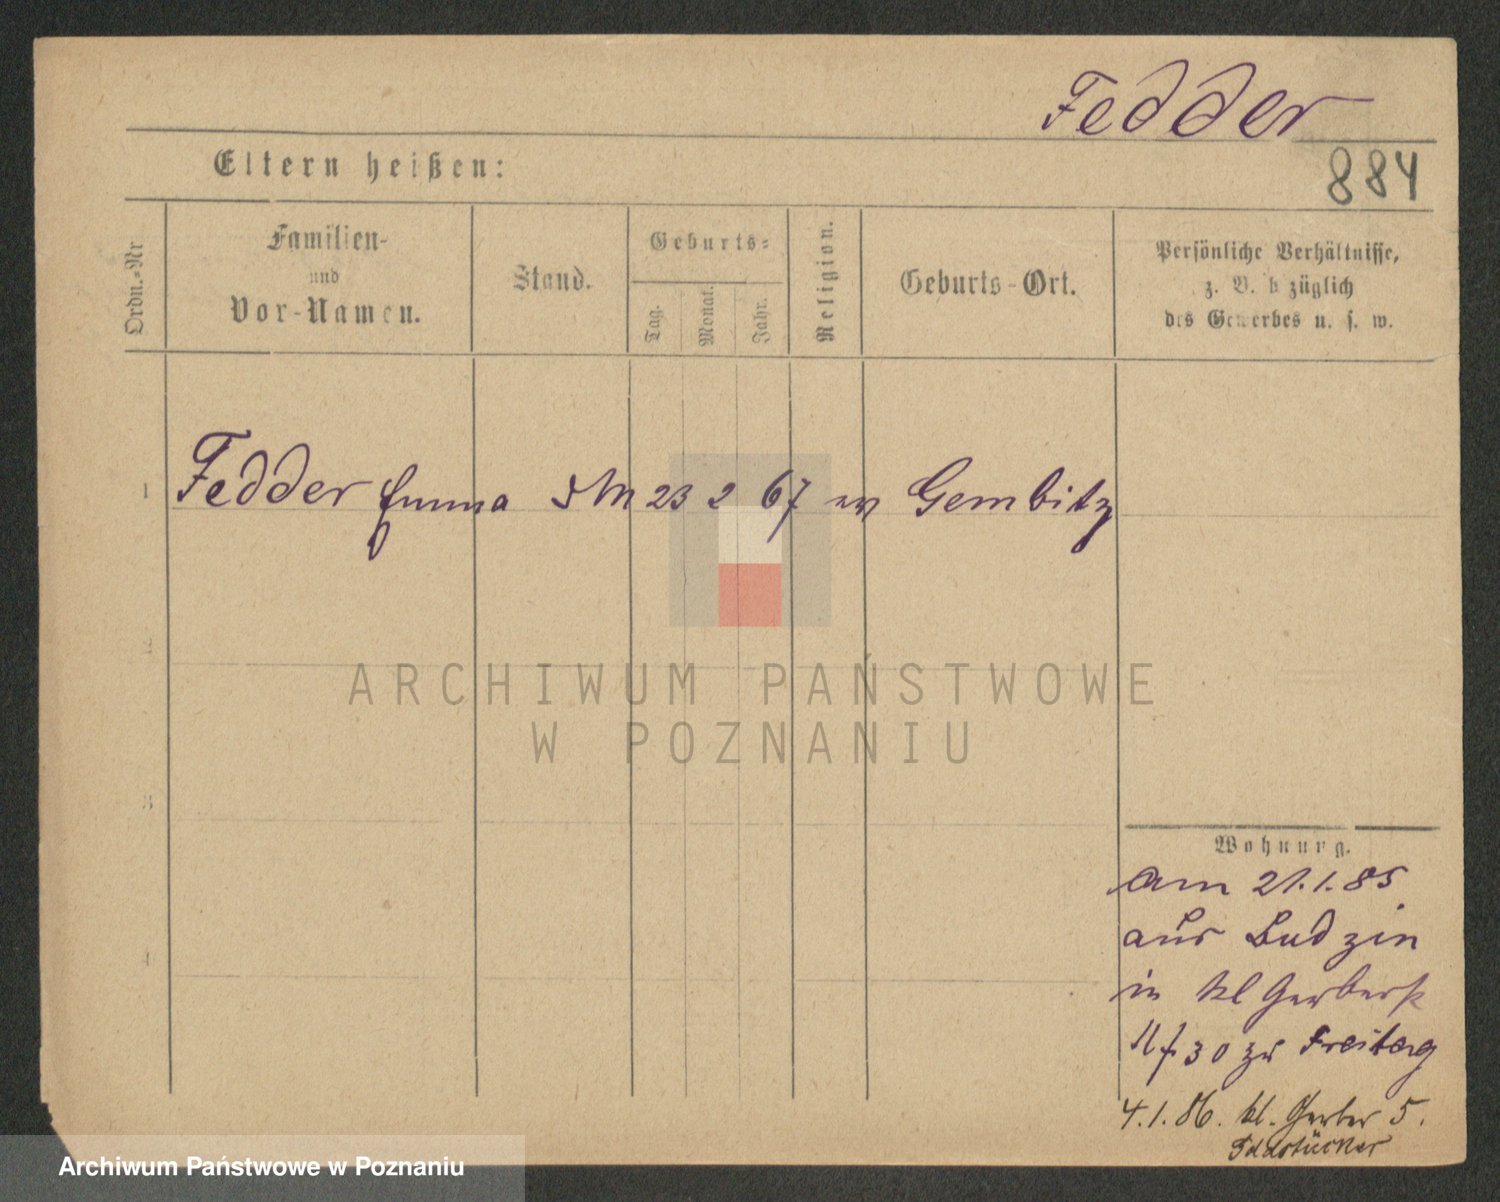 Fedder
Eltern heißen:
884
Ordn.-Nr
Familien-
und
Vor-Namen.
Stand.
Geburts-
Tag.
Monat.
Jahr.
Religion.
Geburts-Ort.
Persönliche Verhältnisse,
z. B. b züglich
des Gewerbes u. s. w.
1 Fedder Emma DM 23 2 67 ev Gembitz
2
3
4
ARCHIWUM PAŃSTWOWE
W POZNANIU
Wohnung.
am 21.1.85
aus Budzin
in Kl Gerberst
30 zu Freitag
4.1.86. kl. Gerber 5.
Archiwum Państwowe w Poznaniu